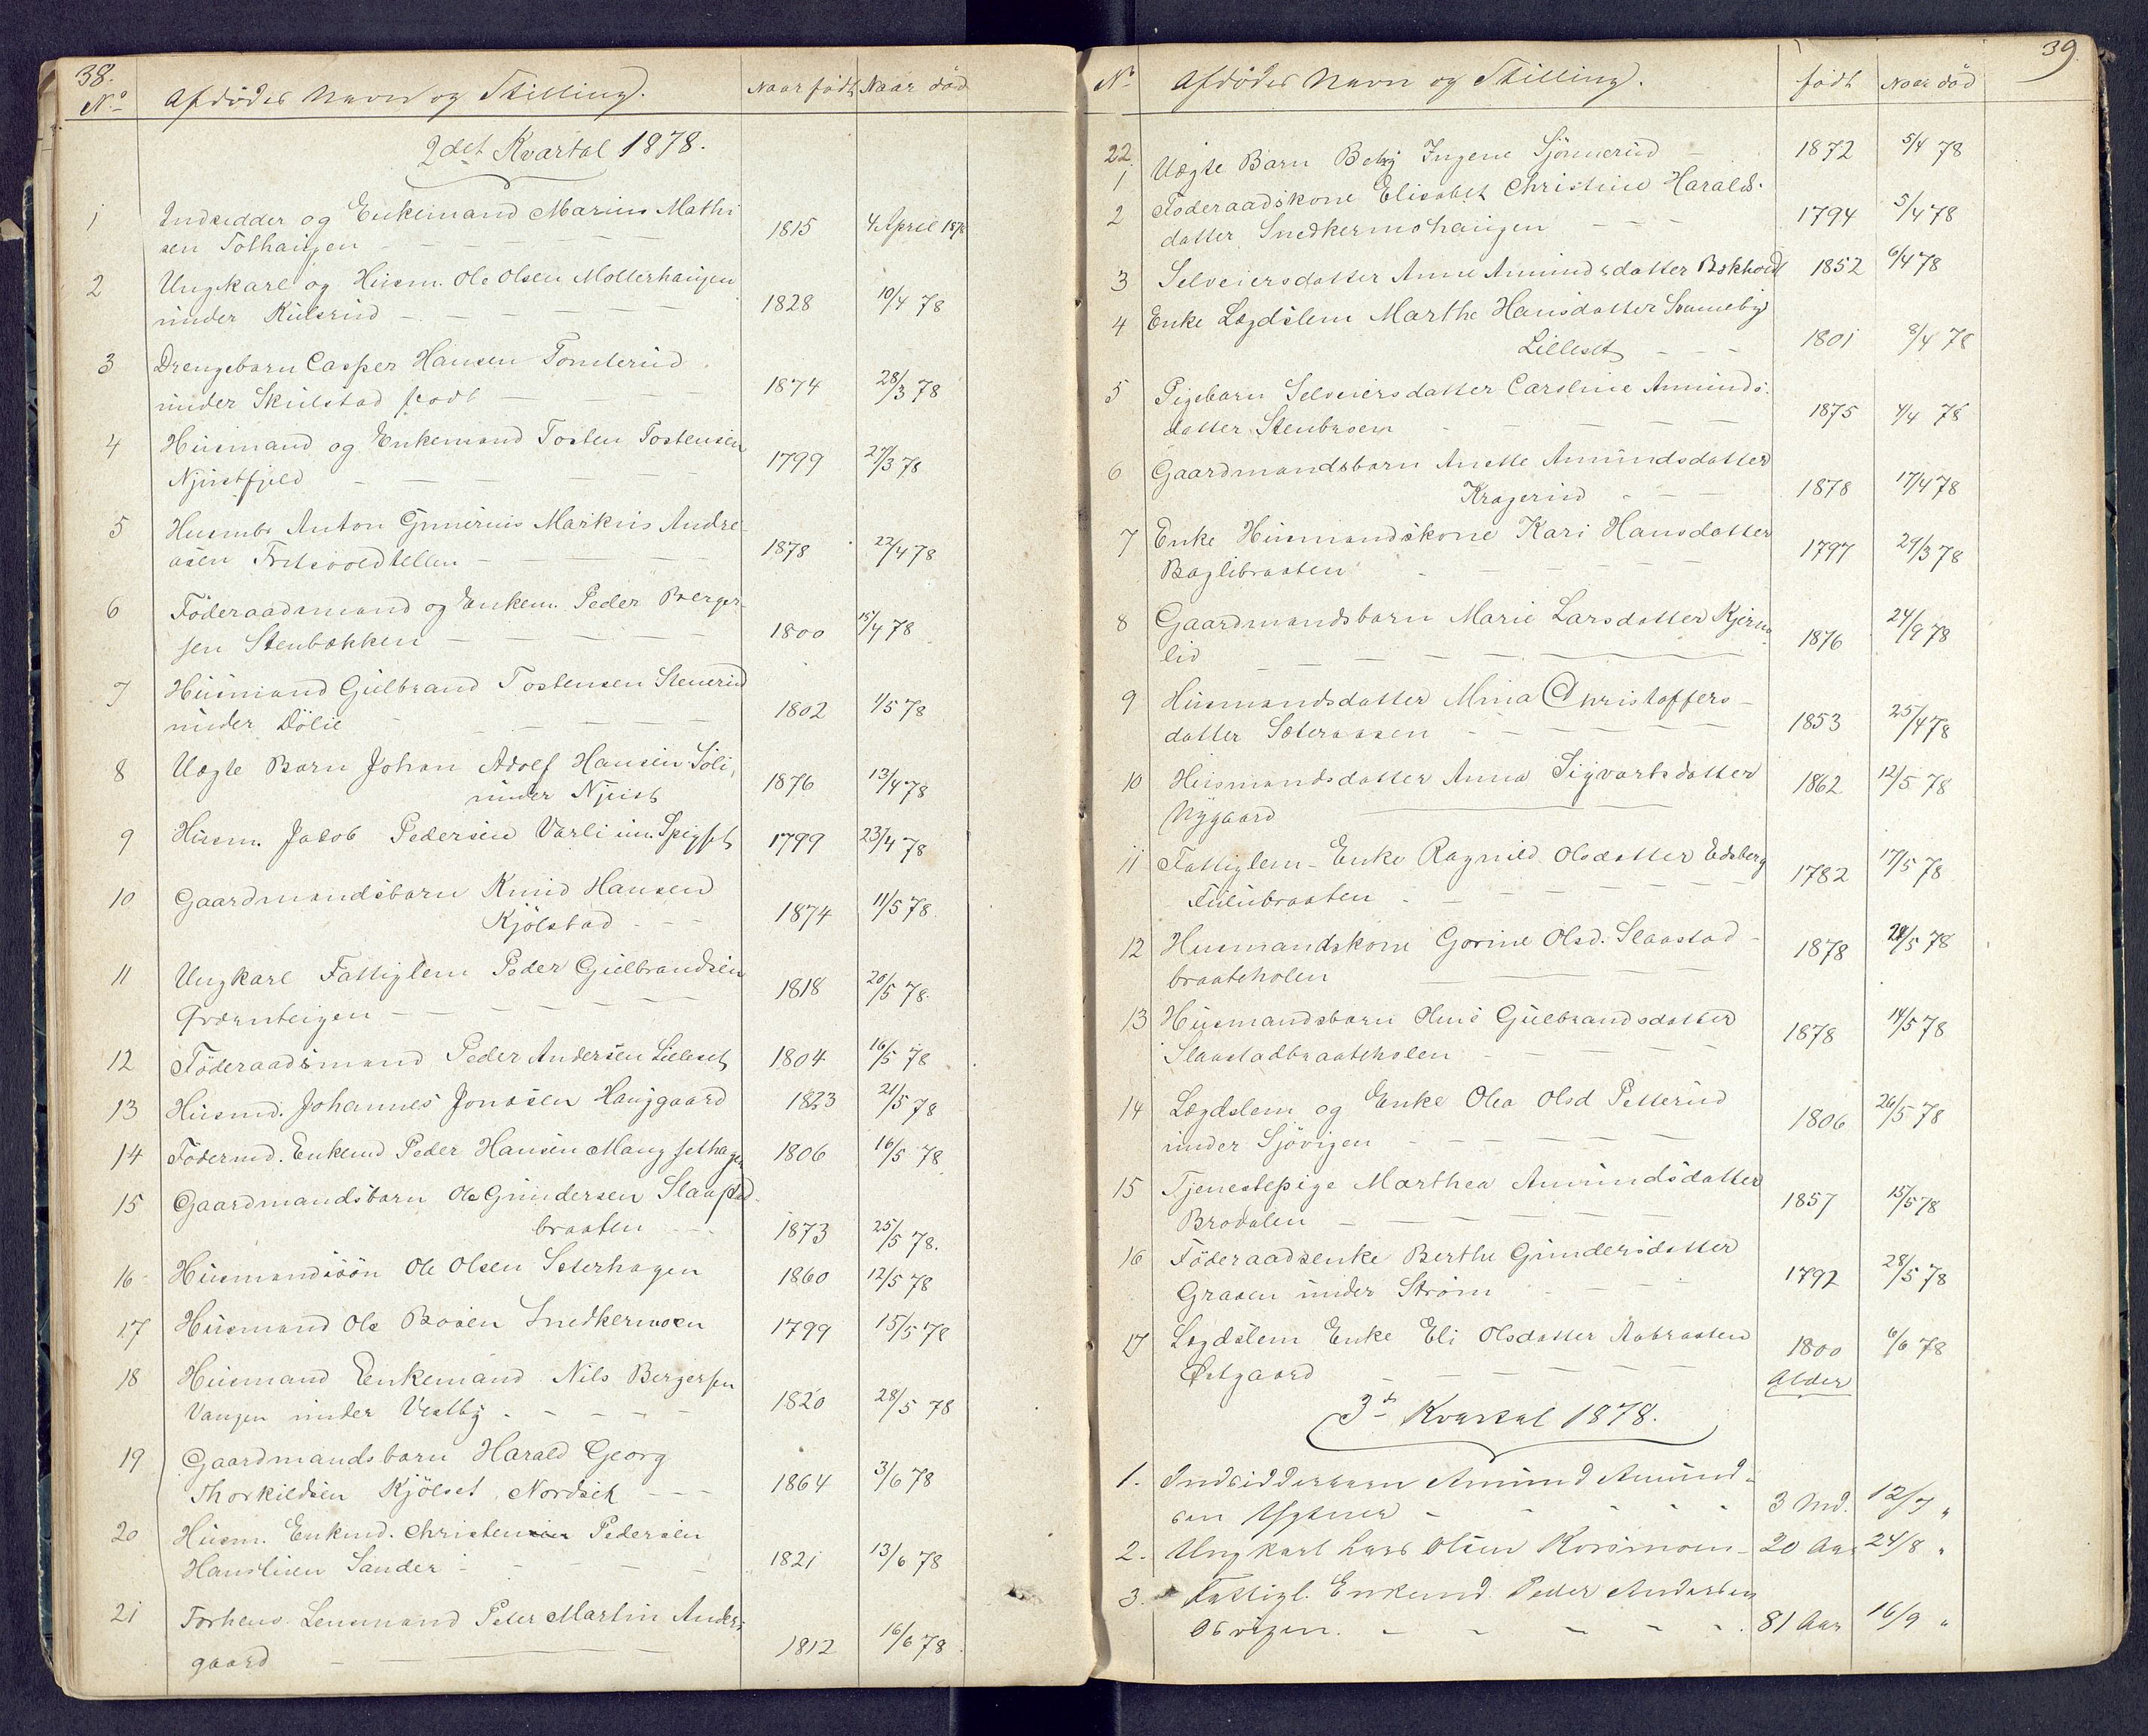 38.
No Afdødes Navn og Stilling. Naar født Naar død
2det Kvartal 1878.
1 Indsidder og Enkemand Marius Mathi
sen Tothaugen 1815 4 April 1878
2 Ungkarl og Husm. Ole Olsen Mollerhaugen
under Kulsrud 1828 10/4 78
3 Drengebarn Casper Hansen Tomterud
under Skulstad født 1874 28/3 78
4 Husmand og Enkemand Tosten Tostensen
Njustfjeld 1799 27/3 78
5 Husmbr Anton Gunerius Markus Andre-
asen 1878 22/4 78
6 Föderaadsmand og Enkem. Peder Berger-
sen Stenbækken 1800 15/4 78
7 Husmand Gulbrand Tostensen Stenerud
under Dölie 1802 1/5 78
8 Uægte Barn Johan Adolf Hansen Söli,
under Njust 1876 13/4 78
9 Husm. Jacob Pedersen Varli un. Spigset 1799 23/4 78
10 Gaardmandsbarn Knud Hansen
Kjölstad 1874 11/5 78
11 Ungkarl Fattiglem Peder Gulbrandsen
Qværnteigen 1818 20/5 78.
12 Föderaadsmand Peder Andersen Lilleset 1804 16/5 78
13 Husmd. Johannes Jonasen Hauggaard 1823 21/5 78
14 Födermd. Enkemd Peder Hansen Mangsethagen 1806 16/5 78
15 Gaardmandsbarn Ole Gundersen Slaastad-
braaten 1873 25/5 78.
16 Husmandssön Ole Olsen Seterhagen 1860 12/5 78
17 Husmand Ole Boesen Snedkermoen 1799 15/5 78
18 Husmand Eenkemand Nils Bergersen
Vangen under Vestby 1820 28/5 78
19 Gaardmandsbarn Harald Georg
Thorkildsen Kjölset Nordsek 1864 3/6 78
20 Husm. Enkmd. Christen Pedersen
Hanslien Sander 1821 13/6 78
21 Forhens. Lensmand Peter Martin Anders-
gaard 1812 16/6 78
39.
No Afdødes Navn og Stilling. født Naar död
22
1 Uægte Barn Betzy Ingene Sjönnerud 1872 5/4 78
2 Föderaadskone Elisabet Christine Haralds-
datter Snedkermohaugen 1794 5/4 78
3 Selveiersdatter Anne Amundsdatter Bekholdt 1852 6/4 78
4 Enke Lægdslem Marthe Hansdatter Sanneby
Lilleset 1801 8/4 78
5 Pigebarn Selveiersdatter Caroline Amunds-
datter Stenbroen 1875 4/4 78
6 Gaardmandsbarn Anette Amundsdatter
Kragerud 1878 17/4 78
7 Enke Husmandskone Kari Hansdatter
Baglibraaten 1797 29/3 78
8 Gaardmandsbarn Marie Larsdatter Kjerna
lid 1876 24/9 78
9 Husmandsdatter Mina Christoffers-
datter Sæteraasen 1853 25/4 78
10 Husmandsdatter Anna Sigvartsdatter
Nygaard 1862 12/5 78
11 Fattiglem-Enke Ragnild Olsdatter Edsberg
Fulubraaten 1782 17/5 78
12 Husmandskone Gorine Olsd. Slaastad-
braateholen 1878 28/5 78
13 Husmandsbarn Oline Gulbrandsdatter
Slaastadbraateholen 1878 14/5 78
14 Lægdslem og Enke Olea Olsd Petterud
under Sjövigen 1806 26/5 78
15 Tjenestepige Marthea Amundsdatter
Brodalen 1857 15/5 78
16 Föderaadsenke Berthe Gundersdatter
Grasen under Ström 1792 28/5 78
17 Lægdslem Enke Eli Olsdatter Aabraaten
Østgaard 1800 6/6 78
Alder
3de Kvartal 1878.
1. Indsidderbarn Amund Amund-
sen 3 Md. 12/7 "
2. Ungkarl Lars Olsen Korsmoen 20 Aar 24/8 "
3. Fattigl. Enkemd. Peder Andersen
Osvigen. 81 Aar 16/9 "